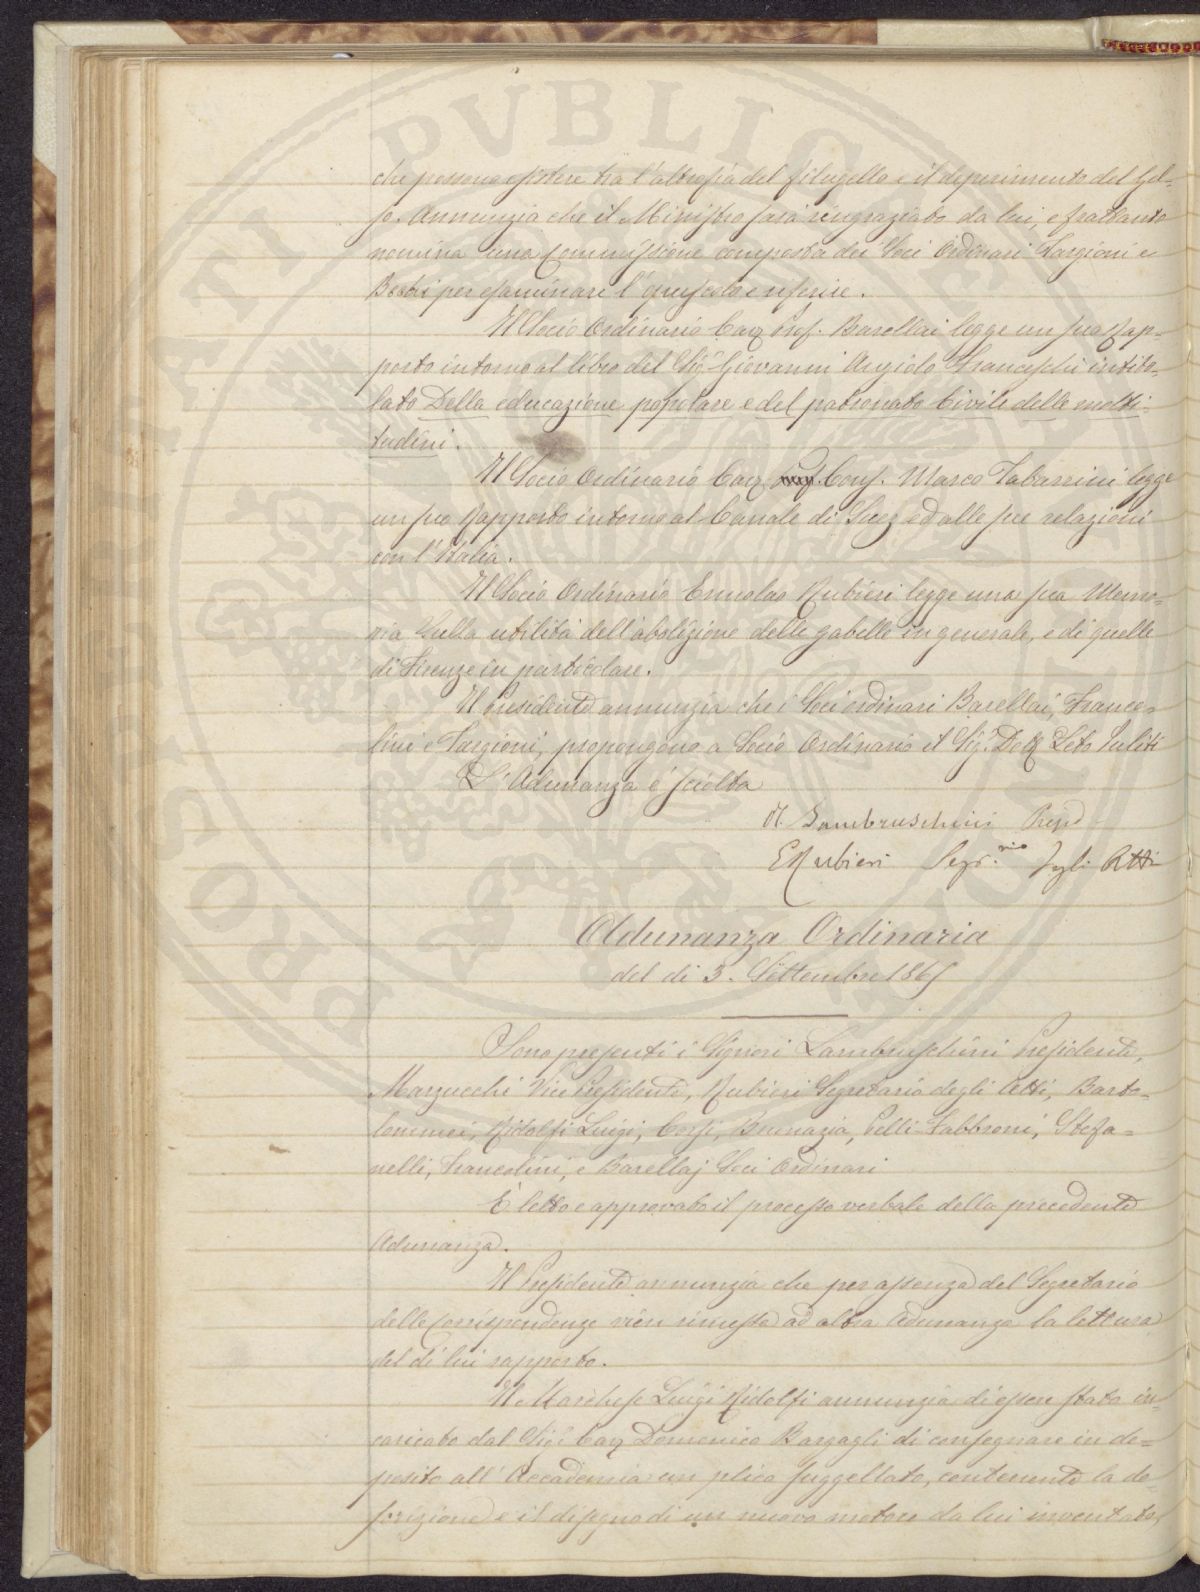 che possono esistere tra l'altrofia del filugello e il deperimento del Gel-
so. Annunzia che il Ministro sarà ringraziato da lui, e frattanto
nomina una Commissione composta dei Soci Ordinari Targioni e
Becchi per esaminare l'opuscolo e riferire.
Il Socio Ordinario Cav. Prof. Barellai legge un suo Rap-
porto intorno al libro del Sig. Giovanni Angiolo Franceschi intito-
lato Della educazione popolare e del patronato Civile delle molti-
tudini.
Il Socio Ordinario Cav. Cons. Marco Tabarrini legge
un suo Rapporto intorno al Canale di Suez ed alle sue relazioni
con l'Italia.
Il Socio Ordinario Ermolao Rubieri legge una sua Memo-
ria Sulla utilità dell'abolizione delle gabelle in generale, e di quelle
di Firenze in particolare.
Il Presidente annunzia che i Soci ordinari Barellai, Franco-
lini e Targioni, propongono a Socio Ordinario il Sig. Dott. Leto Puliti
L'Adunanza è sciolta
R. Lambruschini Presid
E Rubieri Segr.rio degli Atti
Adunanza Ordinaria
del dì 3. Settembre 1865
Sono presenti i Signori Lambruschini Presidente,
Marzucchi Vice Presidente, Rubieri Segretario degli Atti, Barto-
lommei, Ridolfi Luigi, Corsi, Brunazia, Pelli-Fabbroni, Stefa-
nelli, Francolini, e Barellaj Soci Ordinari
È letto e approvato il processo verbale della precedente
Adunanza.
Il Presidente annunzia che per assenza del Segretario
delle Corrispondenze vien rimessa ad altra Adunanza la lettura
del di lui rapporto.
Il Marchese Luigi Ridolfi annunzia di essere stato in-
caricato dal Sig. Cav. Domenico Bargagli di consegnare in de-
posito all'Accademia un plico suggellato, contenente la de-
scrizione e il disegno di un nuovo motore da lui inventato,
PVBLICAE
PROSPERITATI